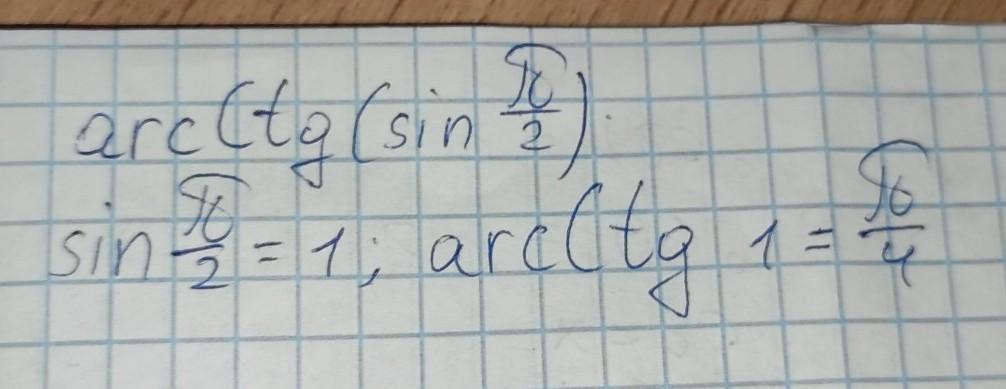 arcctg(sin π/2).
sin π/2 = 1; arcctg 1 = π/4